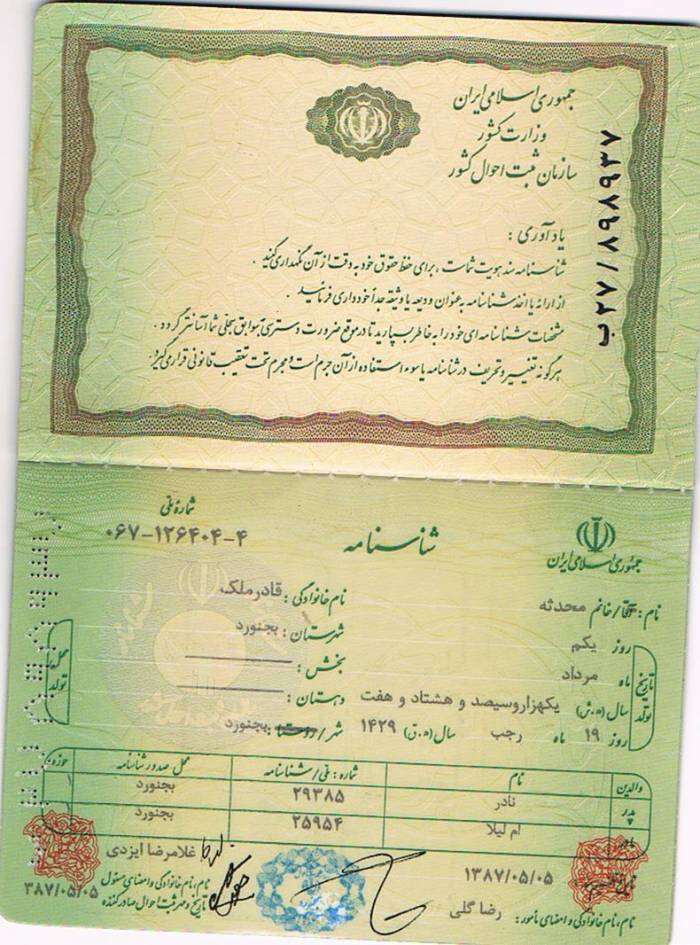 جمهوری اسلامی ایران
وزارت کشور
سازمان ثبت احوال کشور
ب۲۷/۸۹۸۹۳۷
یادآوری :
شناسنامه سند هویت شماست ، برای حفظ حقوق خود به دقت از آن نگهداری کنید .
از ارائه یا اخذ شناسنامه به عنوان ودیعه یا وثیقه جداً خودداری فرمائید .
مشخصات شناسنامه ای خود را به خاطر بسپارید تا در موقع ضرورت دسترسی به سوابق سجلی شما آسانتر گردد .
هرگونه تغییر و تحریف در شناسنامه یا سوء استفاده از آن جرم است و مجرم تحت تعقیب قانونی قرار می گیرد.
جمهوری اسلامی ایران
شناسنامه
شماره ملی
۰۶۷-۱۲۶۴۰۴-۴
نام : آقا/خانم محدثه
نام خانوادگی : قادرملک
تاریخ تولد
روز یکم
ماه مرداد
سال (ه.ش) یکهزاروسیصد و هشتاد و هفت
روز ۱۹ ماه رجب سال (ه.ق) ۱۴۲۹
محل تولد
شهرستان : بجنورد
بخش :
دهستان :
شهر/روستا : بجنورد
والدین نام شماره : ملی/شناسنامه محل صدور شناسنامه حوزه
پدر نادر ۲۹۳۸۵ بجنورد ۱
مادر ام لیلا ۲۵۹۵۴ بجنورد
۱۳۸۷/۰۵/۰۵
رضا گلی
نام، نام خانوادگی و امضای مأمور :
غلامرضا ایزدی
نام، نام خانوادگی و امضای مسئول
تاریخ و مهر ثبت احوال صادر کننده
۳۸۷/۰۵/۰۵